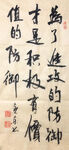 為了進攻的防御
才是积极有價
值的防御